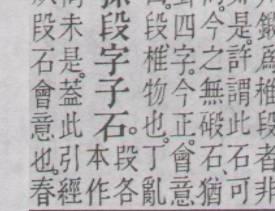 爲椎段者非
是。許謂此石可
今之無碫石、猶
四字今正。會意
段椎物也。丁亂
孫段字子石。
段各
本作
未是。蓋此引經
段石會意也。春